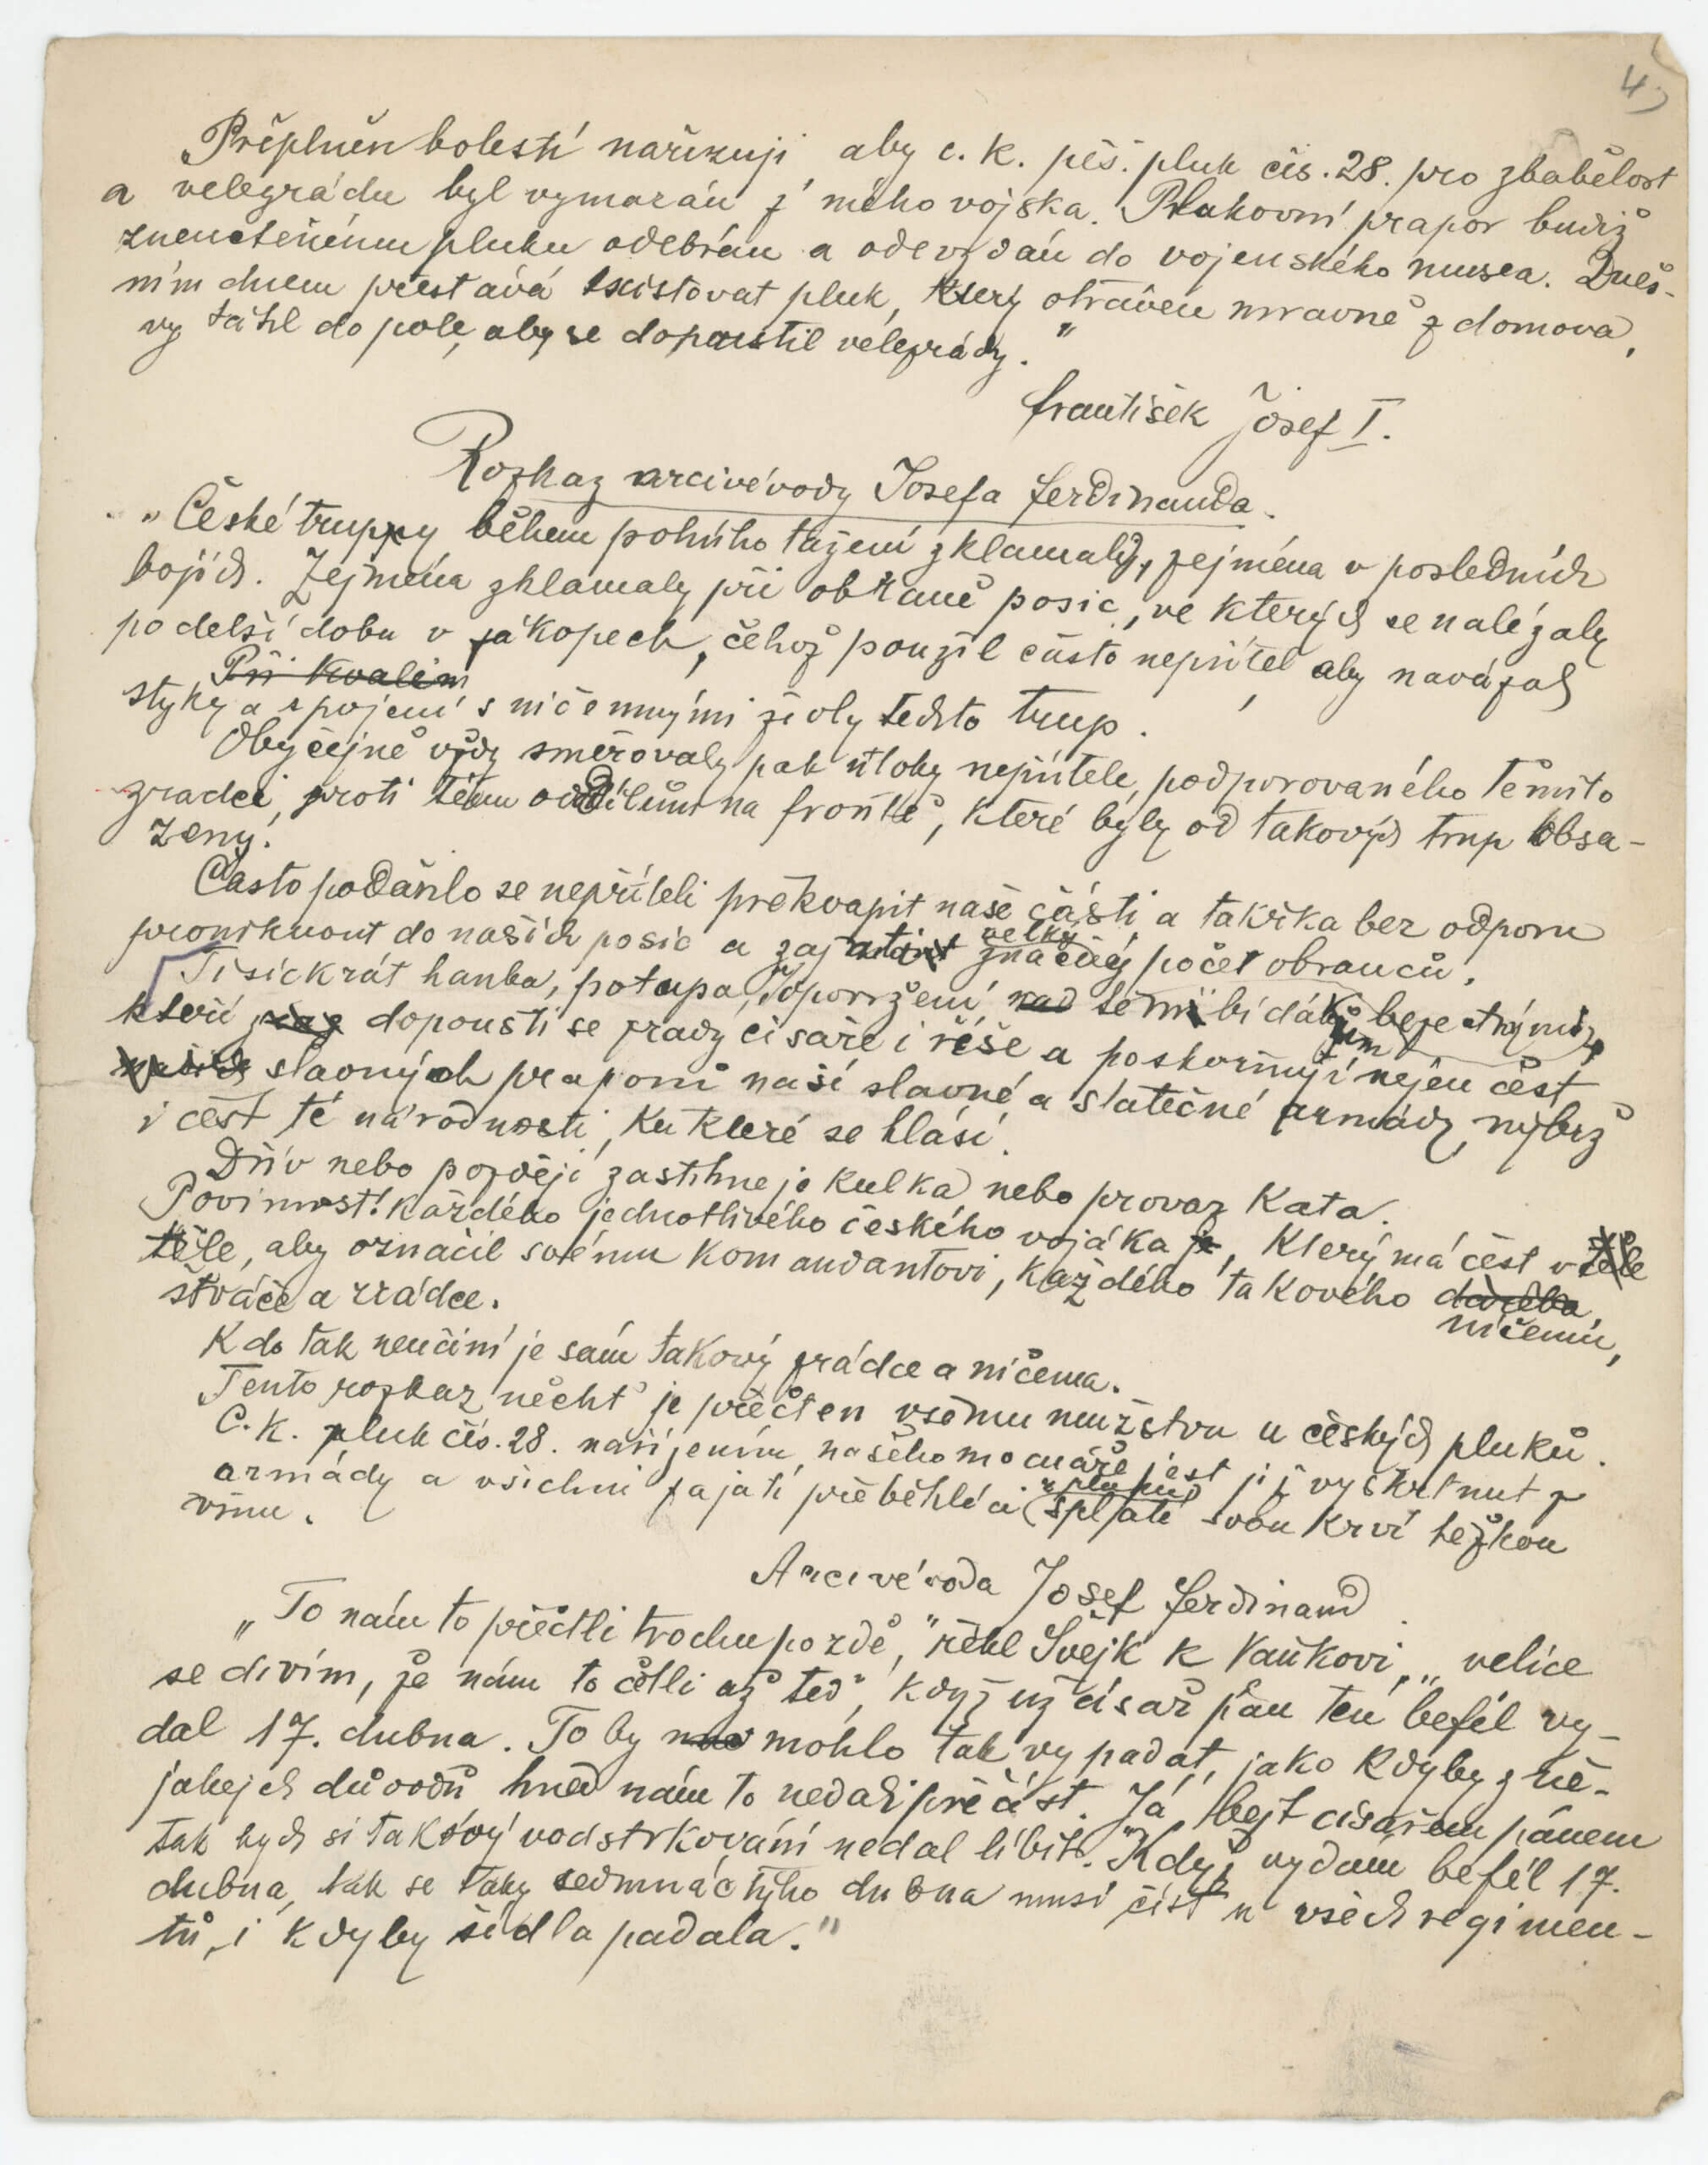 4)
„Přeplněn bolestí nařizuji, aby c. k. pěš. pluk čís. 28. pro zbabělost
a velezrádu byl vymazán z mého vojska. Plukovní prapor budiž
zneuctěnému pluku odebrán a odevzdán do vojenského musea. Dneš-
ním dnem přestává existovat pluk, který otráven mravně z domova,
vytáhl do pole, aby se dopustil velezrády.“
František Josef I.
Rozkaz arcivévody Josefa Ferdinanda.
„České truppy během polního tažení zklamaly, zejména v posledních
bojích. Zejména zklamaly při obraně posic, ve kterých se nalézaly
po delší dobu v zákopech, čehož použil často nepřítel, aby navázal
Při kvalem
styky a spojení s ničemnými živly těchto trup.
Obyčejně vždy směřovaly pak útoky nepřítele, podporovaného těmito
zrádci, proti těm oddílům na frontě, které byly od takových trup obsa-
zeny.
Často podařilo se nepříteli překvapit naše části a takřka bez odporu
proniknout do našich posic a zajmout velký značný počet obránců.
Tisíckrát hanba, potupa, i opovržení nad těmi bídáky bezectnými,
kteří dopouští se zrady císaře i říše a poskvrňují nejen čest
našich slavných praporů naší slavné a statečné armády, nýbrž
i čest té národnosti, ku které se hlásí.
Dřív nebo později zastihne je kulka nebo provaz kata.
Povinností každého jednotlivého českého vojáka je, který má čest v těle
těle, aby označil svému komandantovi, každého takového dareba
ničemu,
štváče a zrádce.
Kdo tak neučiní je sám takový zrádce a ničema.
Tento rozkaz nechť je přečten všemu mužstvu u českých pluků.
C. k. pluk čís. 28. nařízením našeho mocnáře jest již vyškrtnut z
armády a všichni zajatí přeběhlíci z pluku splatí svou krví těžkou
vinu.
Arcivévoda Josef Ferdinand.
„To nám to přečtli trochu pozdě,“ řekl Švejk k Vaňkovi, „velice
se divím, že nám to čtli až teď, když už císař pán ten befél vy-
dal 17. dubna. To by mohlo tak vypadat, jako kdyby z ně-
jakejch důvodů hned nám to nedali přečíst. Já, bejt císařem pánem
tak bych si takový vodstrkování nedal líbit. Když vydám befél 17.
dubna, tak se taky sedmnáctýho dubna musí číst u všech regimen-
tů, i kdyby šídla padala.“